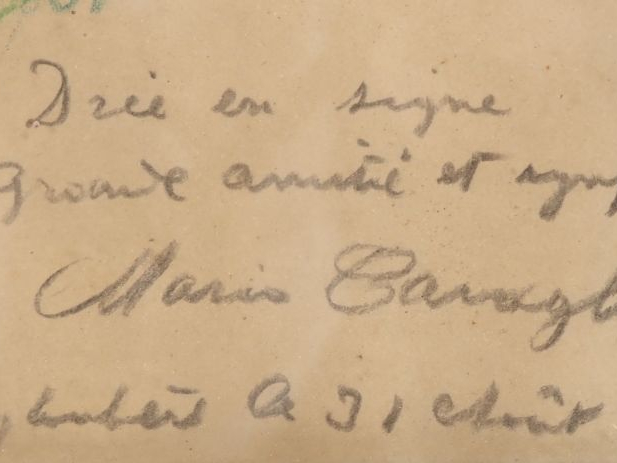 Drée en signe
Grande amitié et symp
Mario Cavagl
le 31 Août